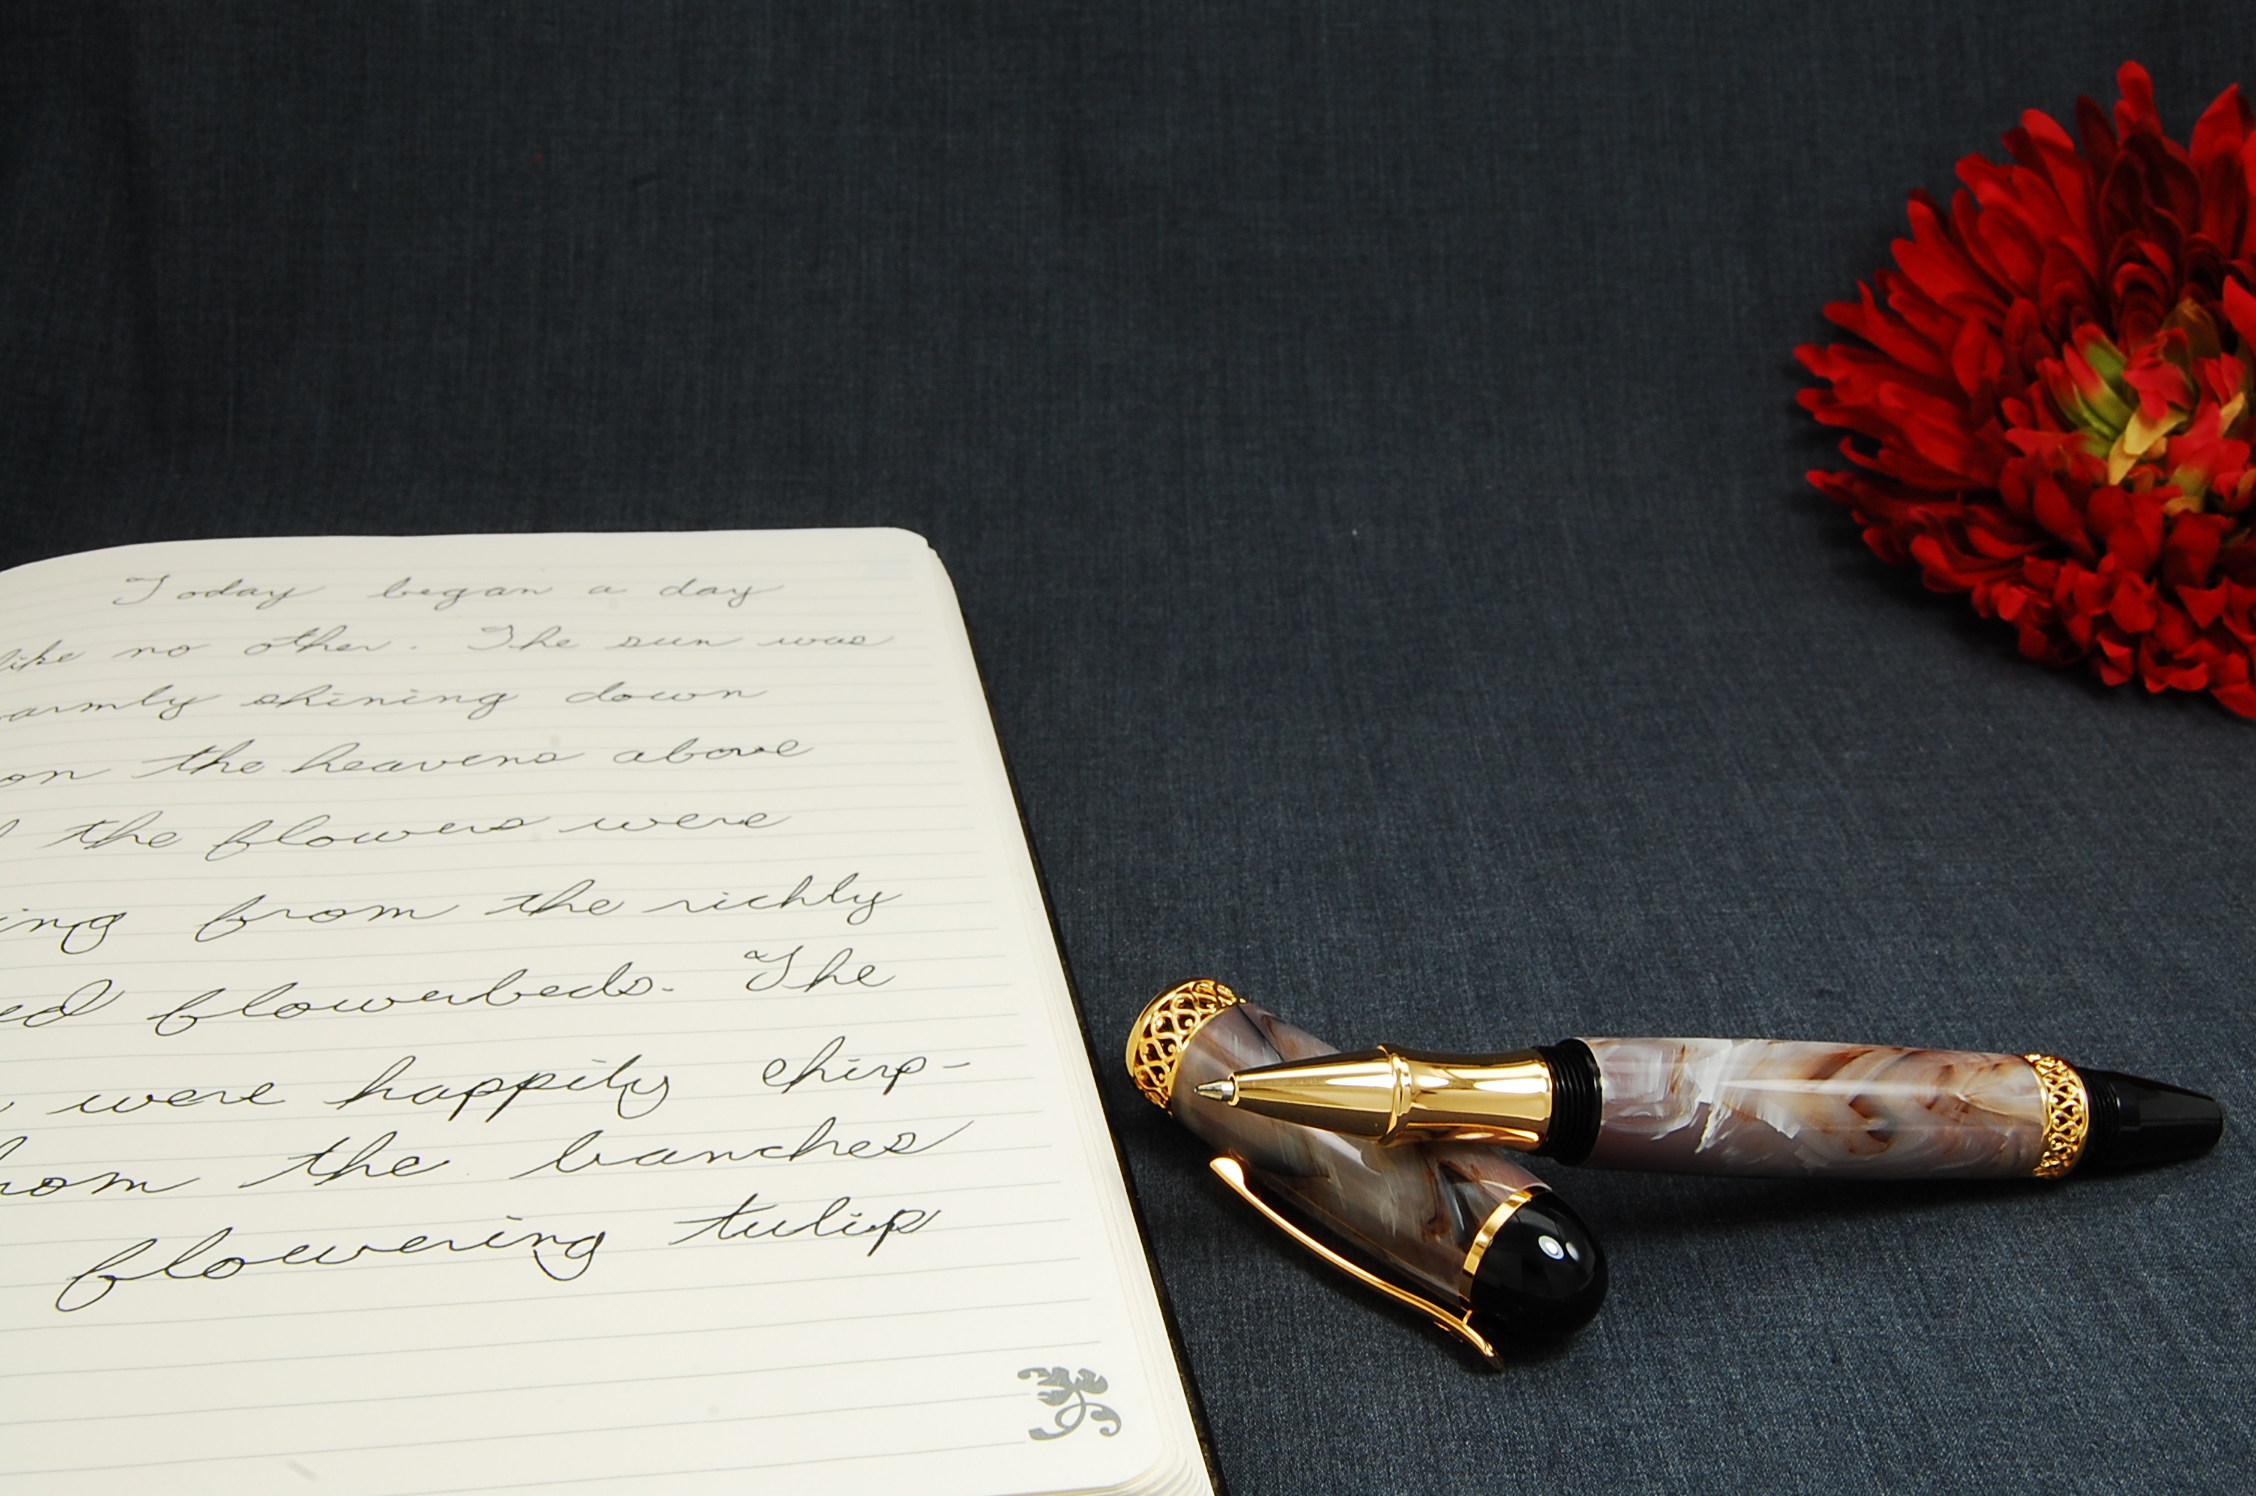 Today began a day
like no other. The sun was
armly shining down
on the heavens above
the flowers were
ing from the richly
ed flowerbeds. The
were happily chirp-
rom the branches
flowering tulip